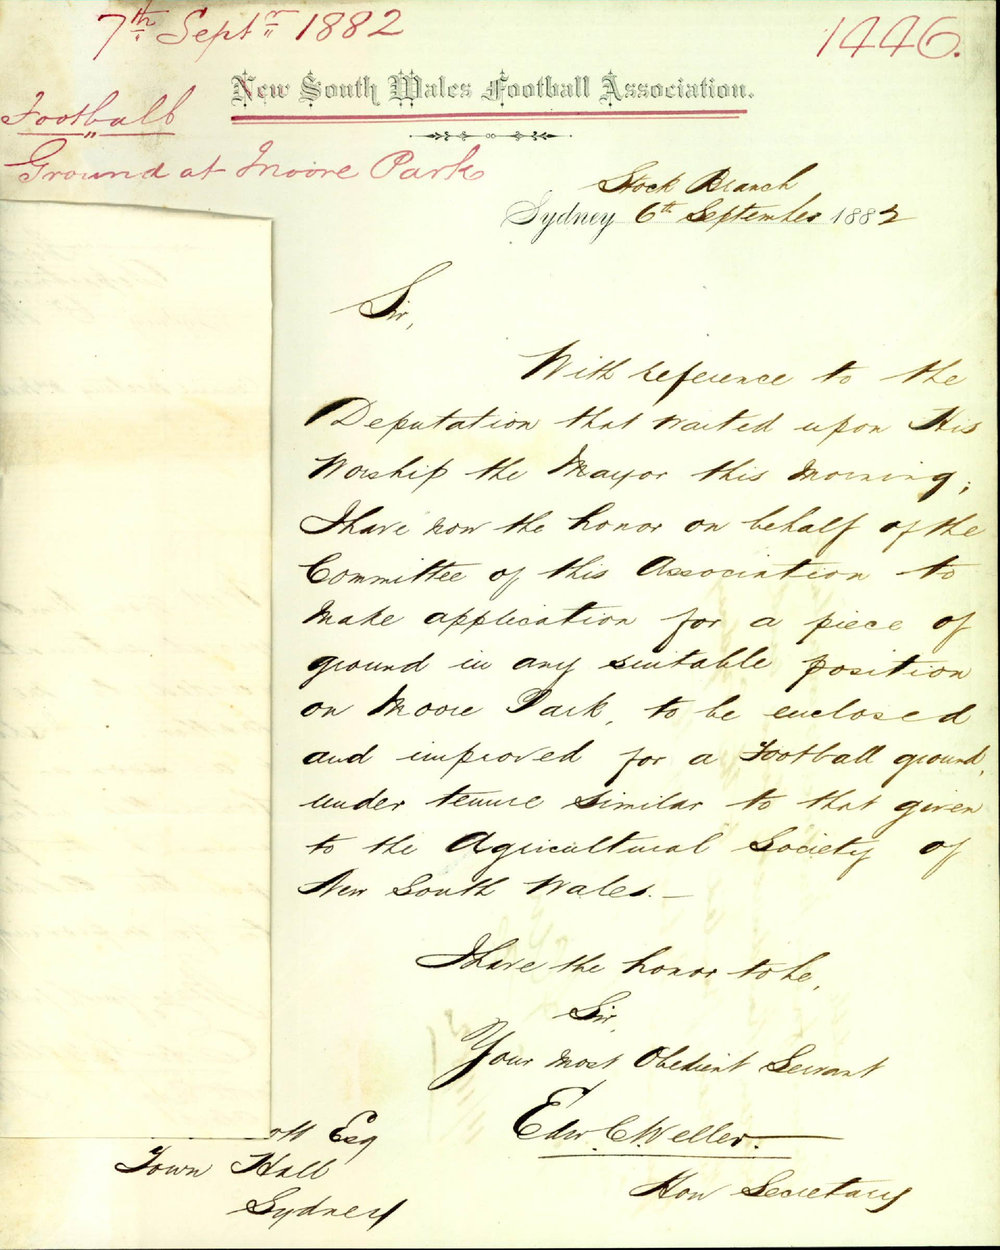 7th Septr 1882
1446.
New South Wales Football Association.
Football
Ground at Moore Park
Stock Branch
Sydney 6th September 1882
Sir,
With reference to the
Deputation that waited upon His
Worship the Mayor this Morning;
I have now the honor on behalf of the
Committee of this Association to
Make application for a piece of
ground in any suitable position
on Moore Park, to be enclosed
and improved for a Football ground,
under tenure similar to that given
to the Agricultural Society of
New South Wales.—
I have the honor to be,
Sir,
Your Most Obedient Servant
Edw C Weller.
Hon Secretary
ott Esq
Town Hall
Sydney